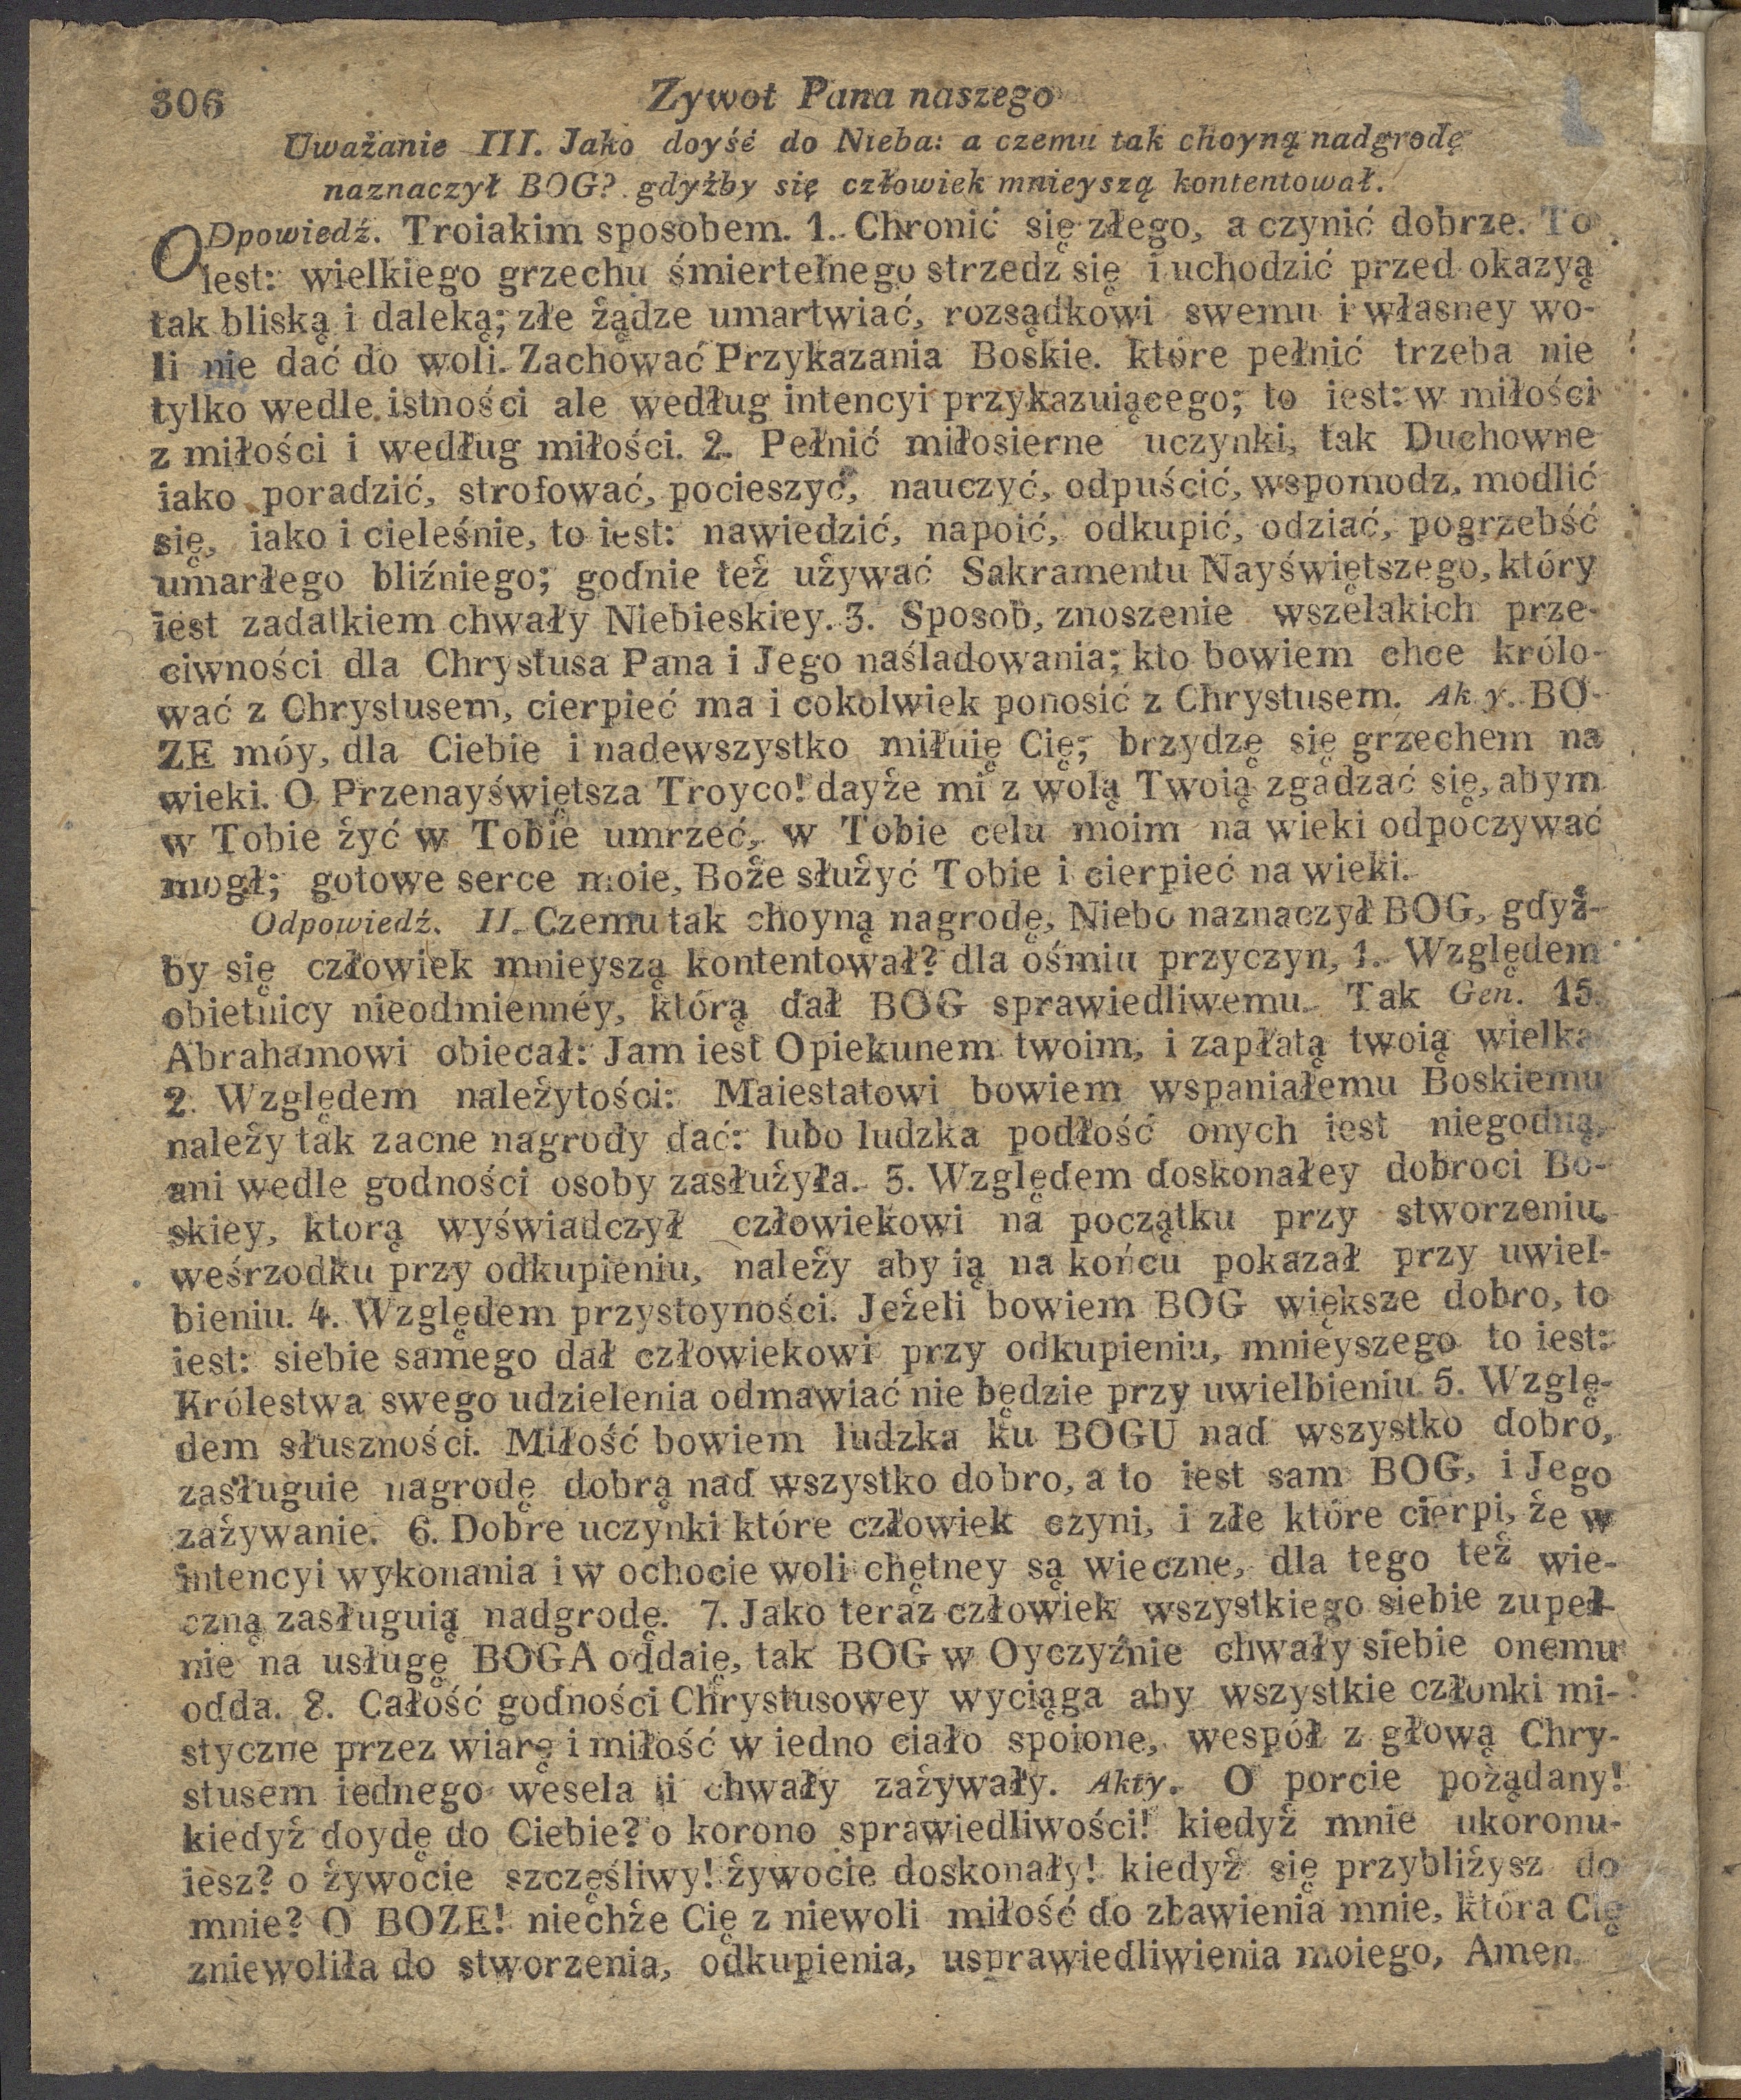 306 Zywot Pana naszego
Uważanie III. Jako doyść do Nieba: a czemu tak choyną nadgrodę
naznaczył BOG? gdyżby się człowiek mnieyszą kontentował.
ODpowiedź. Troiakim sposobem. 1. Chronić się złego, a czynić dobrze. To
iest: wielkiego grzechu śmiertelnego strzedz się i uchodzić przed okazyą
tak bliską i daleką; złe żądze umartwiać, rozsądkowi swemu i własney wo-
li nie dać do woli. Zachować Przykazania Boskie. które pełnić trzeba nie
tylko wedle istności ale według intencyi przykazuiącego; to iest: w miłości
z miłości i według miłości. 2. Pełnić miłosierne uczynki, tak Duchowne
iako poradzić, strofować, pocieszyć, nauczyć, odpuścić, wspomodz, modlić
się, iako i cieleśnie, to iest: nawiedzić, napoić, odkupić, odziać, pogrzebść
umarłego bliźniego; godnie też używać Sakramentu Nayświętszego, który
iest zadatkiem chwały Niebieskiey. 3. Sposob, znoszenie wszelakich prze-
ciwności dla Chrystusa Pana i Jego naśladowania; kto bowiem chce królo-
wać z Chrystusem, cierpieć ma i cokolwiek ponosić z Chrystusem. Ak y. BO-
ZE móy, dla Ciebie i nadewszystko miłuię Cię; brzydzę się grzechem na
wieki. O Przenayświętsza Troyco! dayże mi z wolą Twoią zgadzać się, abym
w Tobie żyć w Tobie umrzeć, w Tobie celu moim na wieki odpoczywać
mogł; gotowe serce moie, Boże służyć Tobie i cierpieć na wieki.
Odpowiedź. II. Czemu tak choyną nagrodę, Niebo naznaczył BOG, gdyż-
by się człowiek mnieyszą kontentował? dla ośmiu przyczyn, 1. Względem
obietnicy nieodmiennéy, którą dał BOG sprawiedliwemu. Tak Gen. 15.
Abrahamowi obiecał: Jam iest Opiekunem twoim, i zapłatą twoią wielką
2. Względem należytości: Maiestatowi bowiem wspaniałemu Boskiemu
należy tak zacne nagrody dać: lubo ludzka podłość onych iest niegodną,
ani wedle godności osoby zasłużyła. 3. Względem doskonałey dobroci Bo-
skiey, ktorą wyświadczył człowiekowi na początku przy stworzeniu,
weśrzodku przy odkupieniu, należy aby ią na końcu pokazał przy uwiel-
bieniu. 4. Względem przystoyności. Jeżeli bowiem BOG większe dobro, to
iest: siebie samego dał człowiekowi przy odkupieniu, mnieyszego to iest:
Królestwa swego udzielenia odmawiać nie będzie przy uwielbieniu. 5. Wzglę-
dem słuszności. Miłość bowiem ludzka ku BOGU nad wszystko dobro,
zasługuie nagrodę dobrą nad wszystko dobro, a to iest sam BOG, i Jego
zażywanie. 6. Dobre uczynki które człowiek czyni, i złe które cierpi, że w
intencyi wykonania i w ochocie woli chętney są wieczne, dla tego też wie-
czną zasługuią nadgrodę. 7. Jako teraz człowiek wszystkiego siebie zupeł-
nie na usługę BOGA oddaię, tak BOG w Oyczyźnie chwały siebie onemu
odda. 8. Całość godności Chrystusowey wyciąga aby wszystkie członki mi-
styczne przez wiarę i miłość w iedno ciało spoione, wespół z głową Chry-
stusem iednego wesela i chwały zażywały. Akty. O porcie pożądany!
kiedyż doydę do Ciebie? o korono sprawiedliwości! kiedyż mnie ukoronu-
iesz? o żywocie szczęśliwy! żywocie doskonały! kiedyż się przybliżysz do
mnie? O BOZE! niechże Cię z niewoli miłość do zbawienia mnie, która Cię
zniewoliła do stworzenia, odkupienia, usprawiedliwienia moiego, Amen.